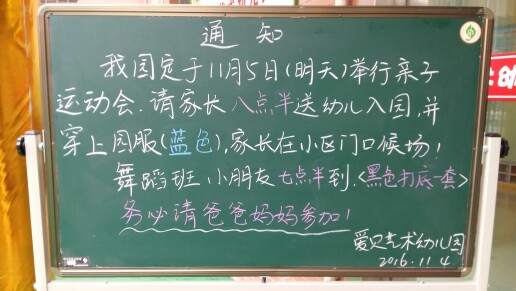 通知
我园定于11月5日(明天)举行亲子
运动会.请家长八点半送幼儿入园,并
穿上园服(蓝色),家长在小区门口候场!
舞蹈班 小朋友七点半到.<黑色打底一套>
务必请爸爸妈妈参加!
爱贝艺术幼儿园
2016.11.4